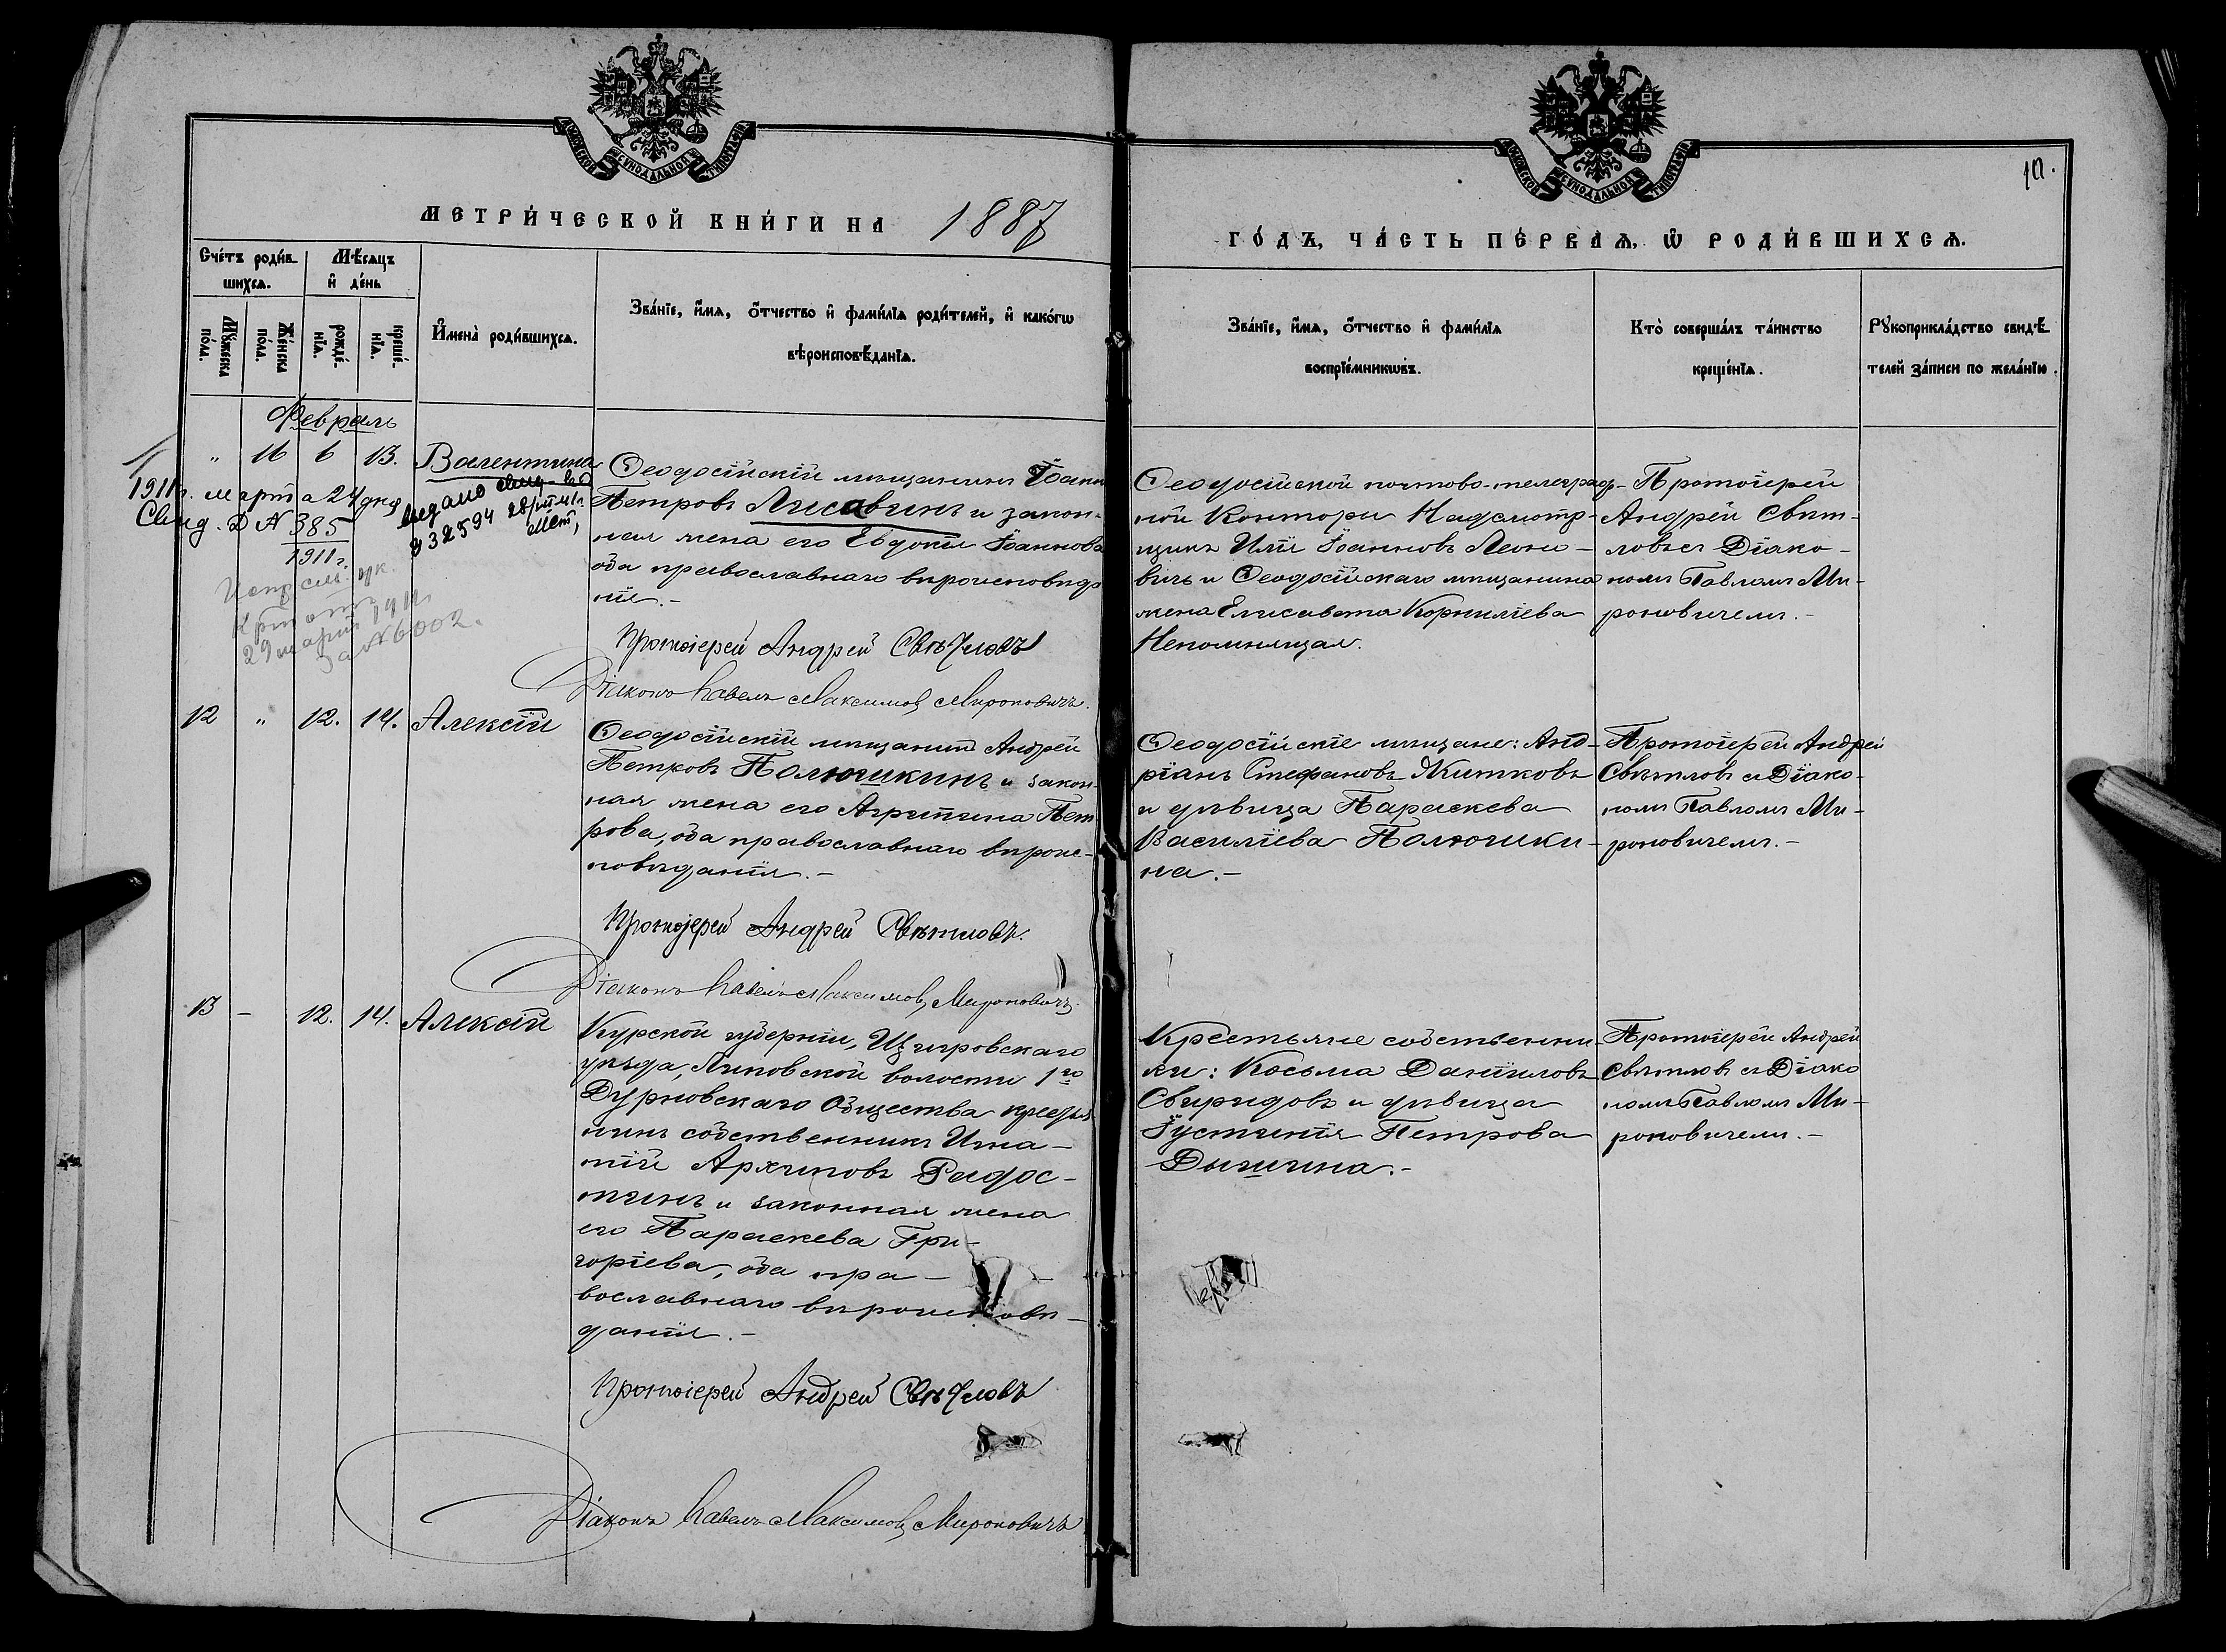 МОСКОВСКОЙ СѴНОДАЛЬНОЙ ТИПОГРАФІИ
МОСКОВСКОЙ СѴНОДАЛЬНОЙ ТИПОГРАФІИ
10.
МЕТРИ́ЧЕСКОЙ КНИ́ГИ НА 1887
ГО́ДЪ, ЧА́СТЬ ПЕ́РВАѦ, Ѽ РОДИ́ВШИХСѦ.
Сче́тъ роди́в
шихсѧ.
Мѣ́сѧцъ
и҆ де́нь
Мꙋ́жеска
по́ла.
Же́нска
по́ла.
рожде́-
нїѧ.
креще́-
нїѧ.
И҆мена̀ роди́вшихсѧ.
Зва́нїе, и҆́мѧ, ѻ҆́тчество и҆ фами́лїѧ роди́телей, и҆ како́гѡ
вѣроисповѣ́данїѧ.
Зва́нїе, и҆́мѧ, ѻ҆́тчество и҆ фами́лїѧ
воспрїе́мникѡвъ.
Кто̀ соверша́лъ та́инство
креще́нїѧ.
Рꙋкоприкла́дство свидѣ́-
телей за́писи по жела́нїю.
Февраль
" 16 6 13. Валентина
1911 г. марта 24 дня
Свид. Д № 385
1911 г.
выдано свид-во
№ 6002.
Ѳеодосійскій мѣщанинъ Іоаннъ
Петровъ Лисавинъ и закон-
ная жена его Евдокія Іоаннова
оба православнаго вѣроисповѣда
нія.-
Протоіерей Андрей Свѣтловъ
Діаконъ Павелъ Максимовъ Мироновичъ.
Ѳеодосійской почтово-телеграф-
ной Конторы Надсмотр-
щикъ Илія Іоанновъ Леоно-
вичъ и Ѳеодосійскаго мѣщанина
жена Елисавета Корниліева
Непомнящая.
Протоіерей
Андрей Свѣт-
ловъ съ Діако-
номъ Павломъ Ми-
роновичемъ.-
12 " 12. 14. Алексій
Ѳеодосійскій мѣщанинъ Андрей
Петровъ Полюшкинъ и закон-
ная жена его Агрипина Пет
рова, оба православнаго вѣроис-
повѣданія.-
Протоіерей Андрей Свѣтловъ.
Діаконъ Павелъ Максимовъ Мироновичъ.
Ѳеодосійскіе мѣщане: Анд-
ріанъ Стефановъ Житковъ
и дѣвица Параскева
Василіева Полюшки-
на.-
Протоіерей Андрей
Свѣтловъ съ Діако-
номъ Павломъ Ми-
роновичемъ.-
13 - 12. 14. Алексій
Курской губерніи, Щигровскаго
уѣзда, Липовской волости 1го
Дурновскаго Общества крестья
нинъ собственникъ Игна-
тій Архиповъ Радос-
тинъ и законная жена
его Параскева Гри-
горіева, оба пра-
вославнаго вѣроисповѣ-
данія.-
Протоіерей Андрей Свѣтловъ
Діаконъ Павелъ Максимовъ Мироновичъ
Крестьяне собственни-
ки: Косьма Даніиловъ
Свиридовъ и дѣвица
Іустинія Петрова
Дышина.-
Протоіерей Андрей
Свѣтловъ съ Діако
номъ Павломъ Ми-
роновичемъ.-